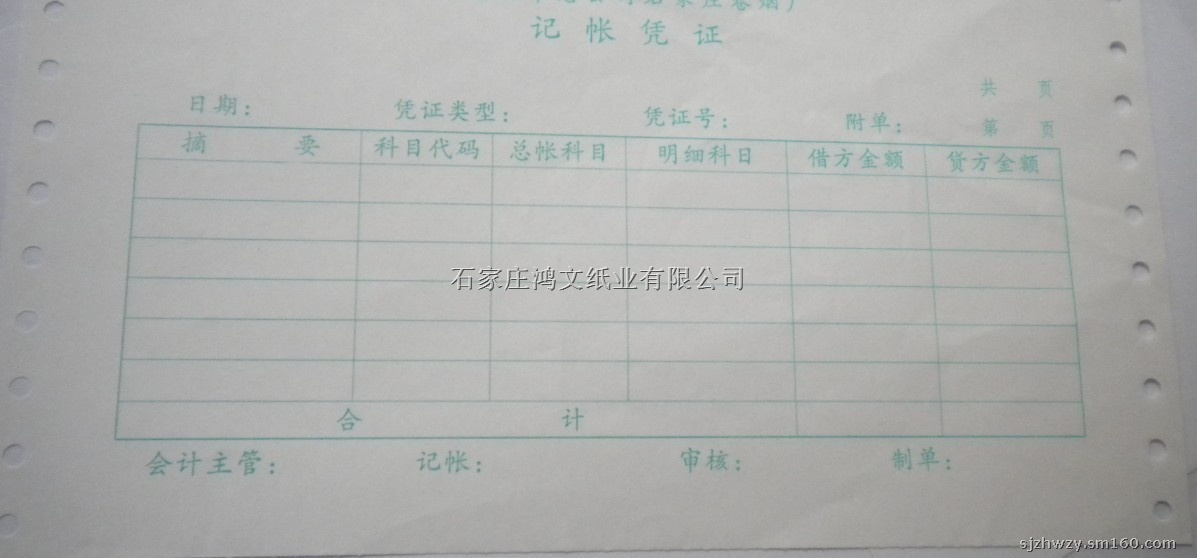 记帐凭证
共 页
日期： 凭证类型： 凭证号： 附单： 第 页
摘 要 科目代码 总帐科目 明细科目 借方金额 贷方金额
石家庄鸿文纸业有限公司
合 计
会计主管： 记帐： 审核： 制单：
sjzhwzy.sm160.com